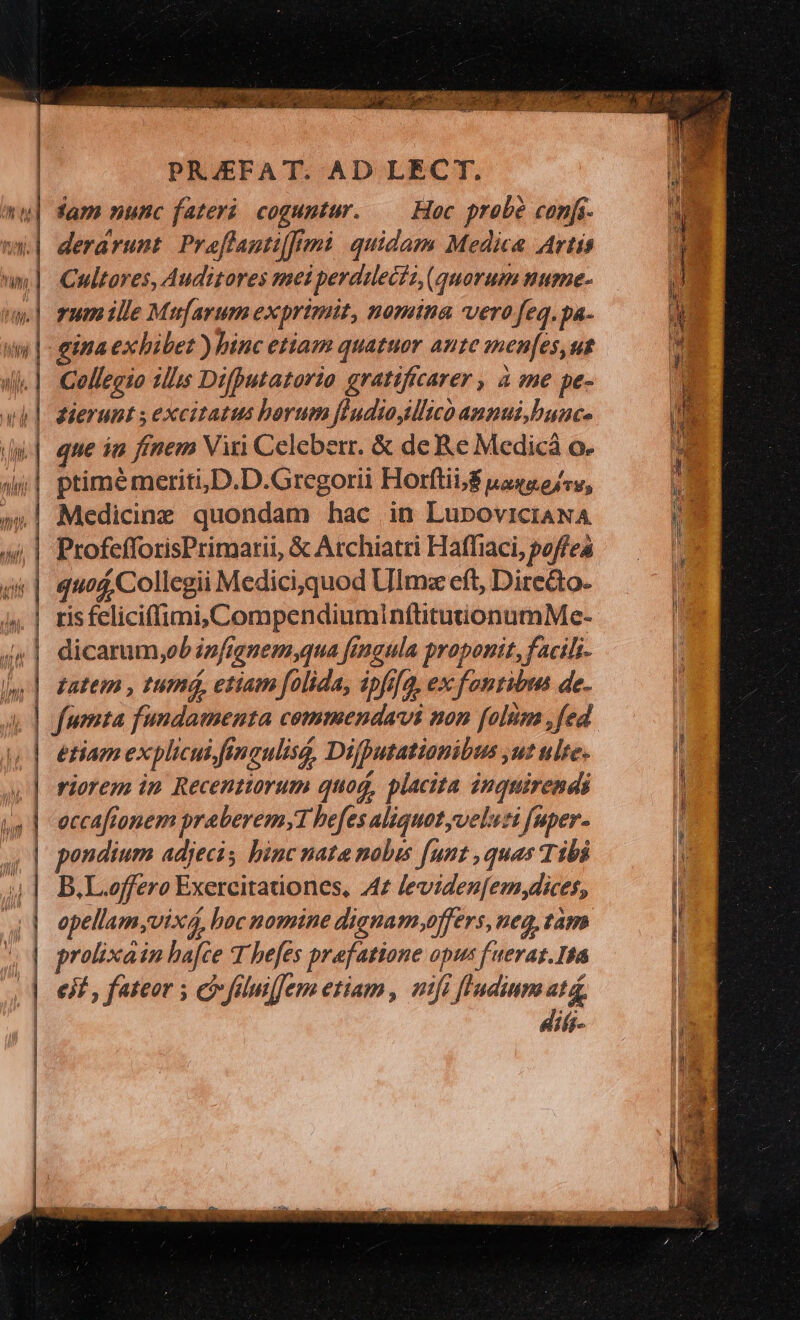 PRÆFAT. AD LECT.
iam nunc fateri coguntur. Hoc probè consi-
derârunt Præstantissimi quidam Medicæ Artis
Cultores, Auditores mei perdilecti, (quorum nume-
rum ille Musarum exprimit, nomina vero seq. pa-
gina exhibet) hinc etiam quatuor ante menses, ut
Collegio illis Disputatorio gratificarer, à me pe-
tierunt; excitatus horum studio, illicò annui, hunc-
que in finem Viri Celeberr. & de Re Medicâ o-
ptimè meriti, D.D. Gregorii Horstii, ȣ̃ μακαρίτȣ,
Medicinæ quondam hac in LUDOVICIANA
Professoris Primarii, & Archiatri Hassiaci, posteà
quoq; Collegii Medici, quod Ulmæ est, Directo-
ris felicissimi, Compendium Institutionum Me-
dicarum, ob insignem, qua singula proponit, facili-
tatem, tumq́; etiam solida, ipsisq́; ex fontibus de-
sumta fundamenta commendavi non solùm, sed
etiam explicui, singulisq́; Disputationibus, ut ulte-
riorem in Recentiorum quoq́; placita inquirendi
occasionem præberem, Theses aliquot, veluti super-
pondium adjeci; hinc nata nobis sunt, quas Tibi
B.L. offero Exercitationes, At levidensem, dices,
opellam, vixq́; hoc nomine dignam, offers, neq́; tàm
prolixâ in hasce Theses præfatione opus fuerat. Ita
est, fateor; & siluissem etiam, nisi studium atq́;
dili-